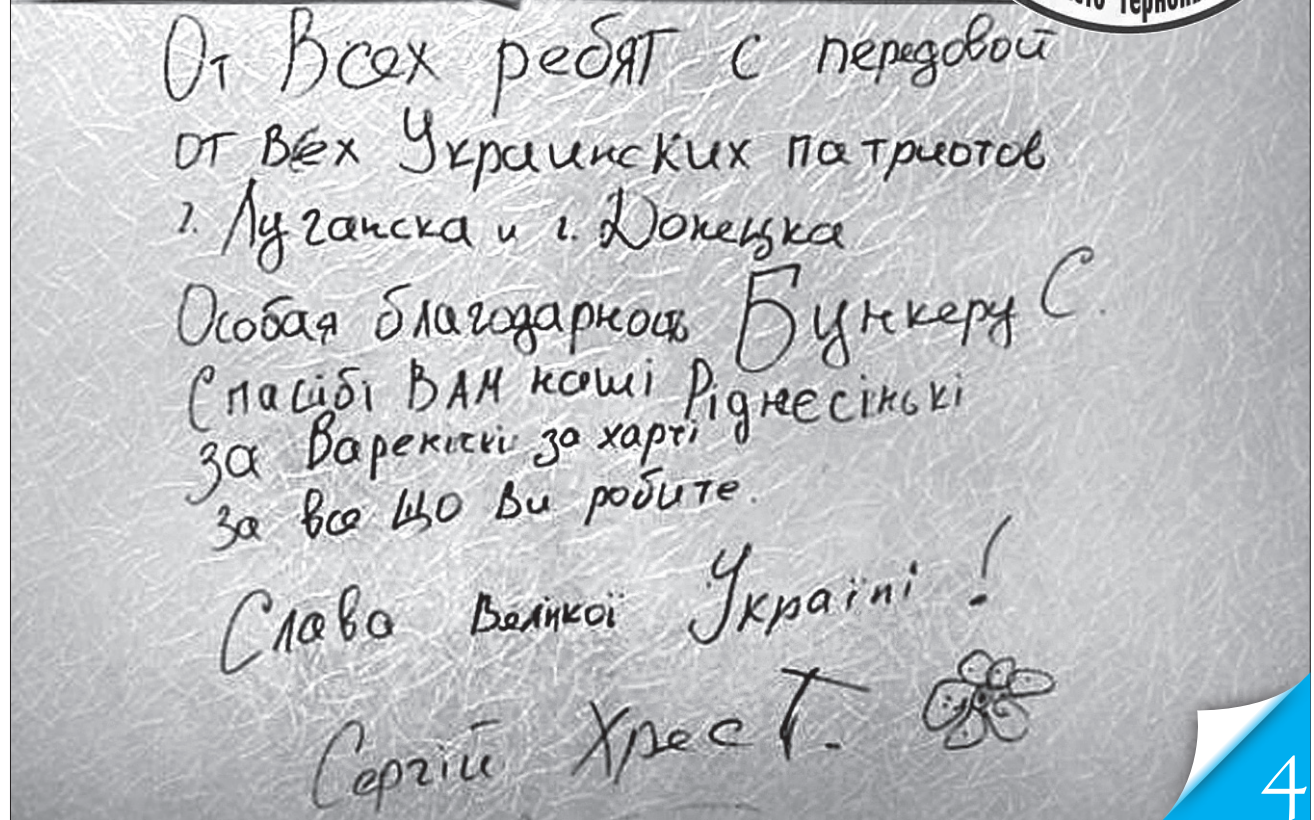 Терноп
От Всех ребят с передовой
от всех Украинских патриотов
г. Луганска и г. Донецка
Особая благодарность Бункеру С.
Спасібі ВАМ наші Ріднесінькі
за Варенікі за харчі
за все ЩО Ви робите.
Слава Велікої Україні!
Сергій Хрест.
4